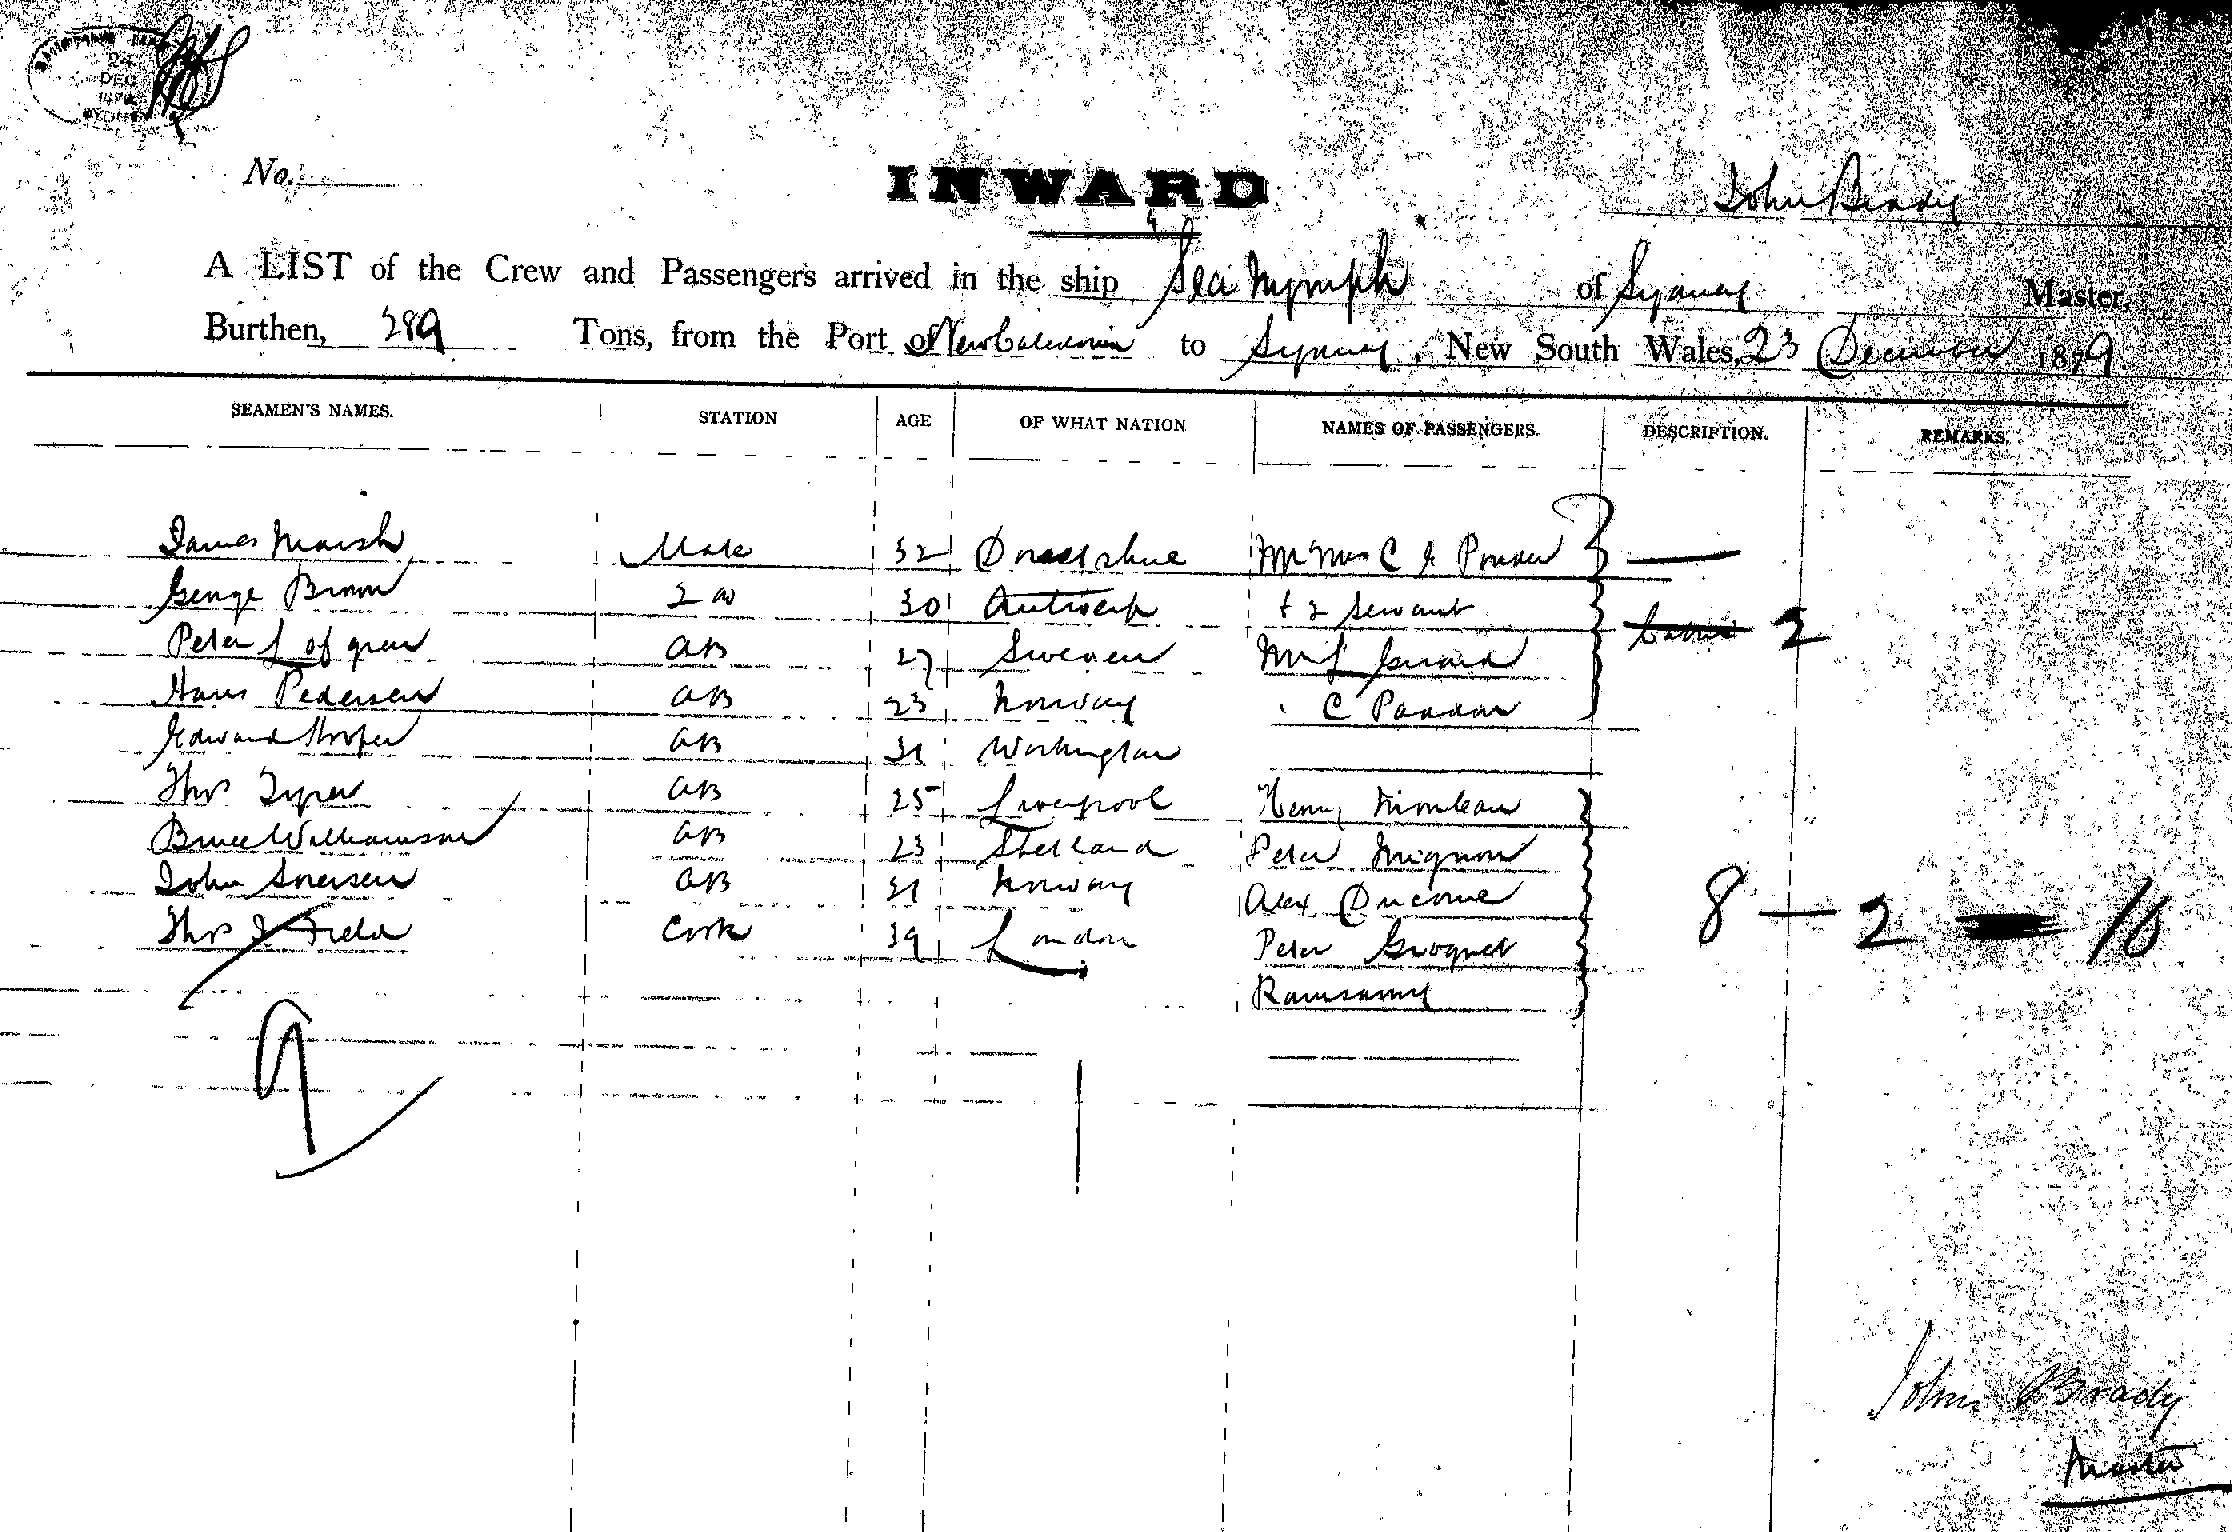 24
DEC
1879
SYDNEY
No.
INWARD
John Brady
A LIST of the Crew and Passengers arrived in the ship Sea Nymph of Sydney Master,
Burthen, 289 Tons, from the Port of New Caledonia to Sydney, New South Wales, 23 December 1879.
SEAMEN'S NAMES. STATION AGE OF WHAT NATION NAMES OF PASSENGERS. DESCRIPTION. REMARKS.
James Marsh Mate 32 Dorsetshire Mr Mrs C J
George Brown 2 30 Antwerp + 2 Servant Cabin 2
Peter Lofgren AB 27 Sweden Mr L Gerard
Hans Pedersen AB 23 Norway C
Edward Hooper AB 31 Workington
Thos Tyrer AB 25 Liverpool Henry
Bruce Williamson AB 23 Shetland Peter Mignon
John Sorensen AB 31 Norway Alex Ducome 8 — 2 — 10
Thos J Field Cook 39 London Peter Groquet
Ramsamy
9
John Brady
Master